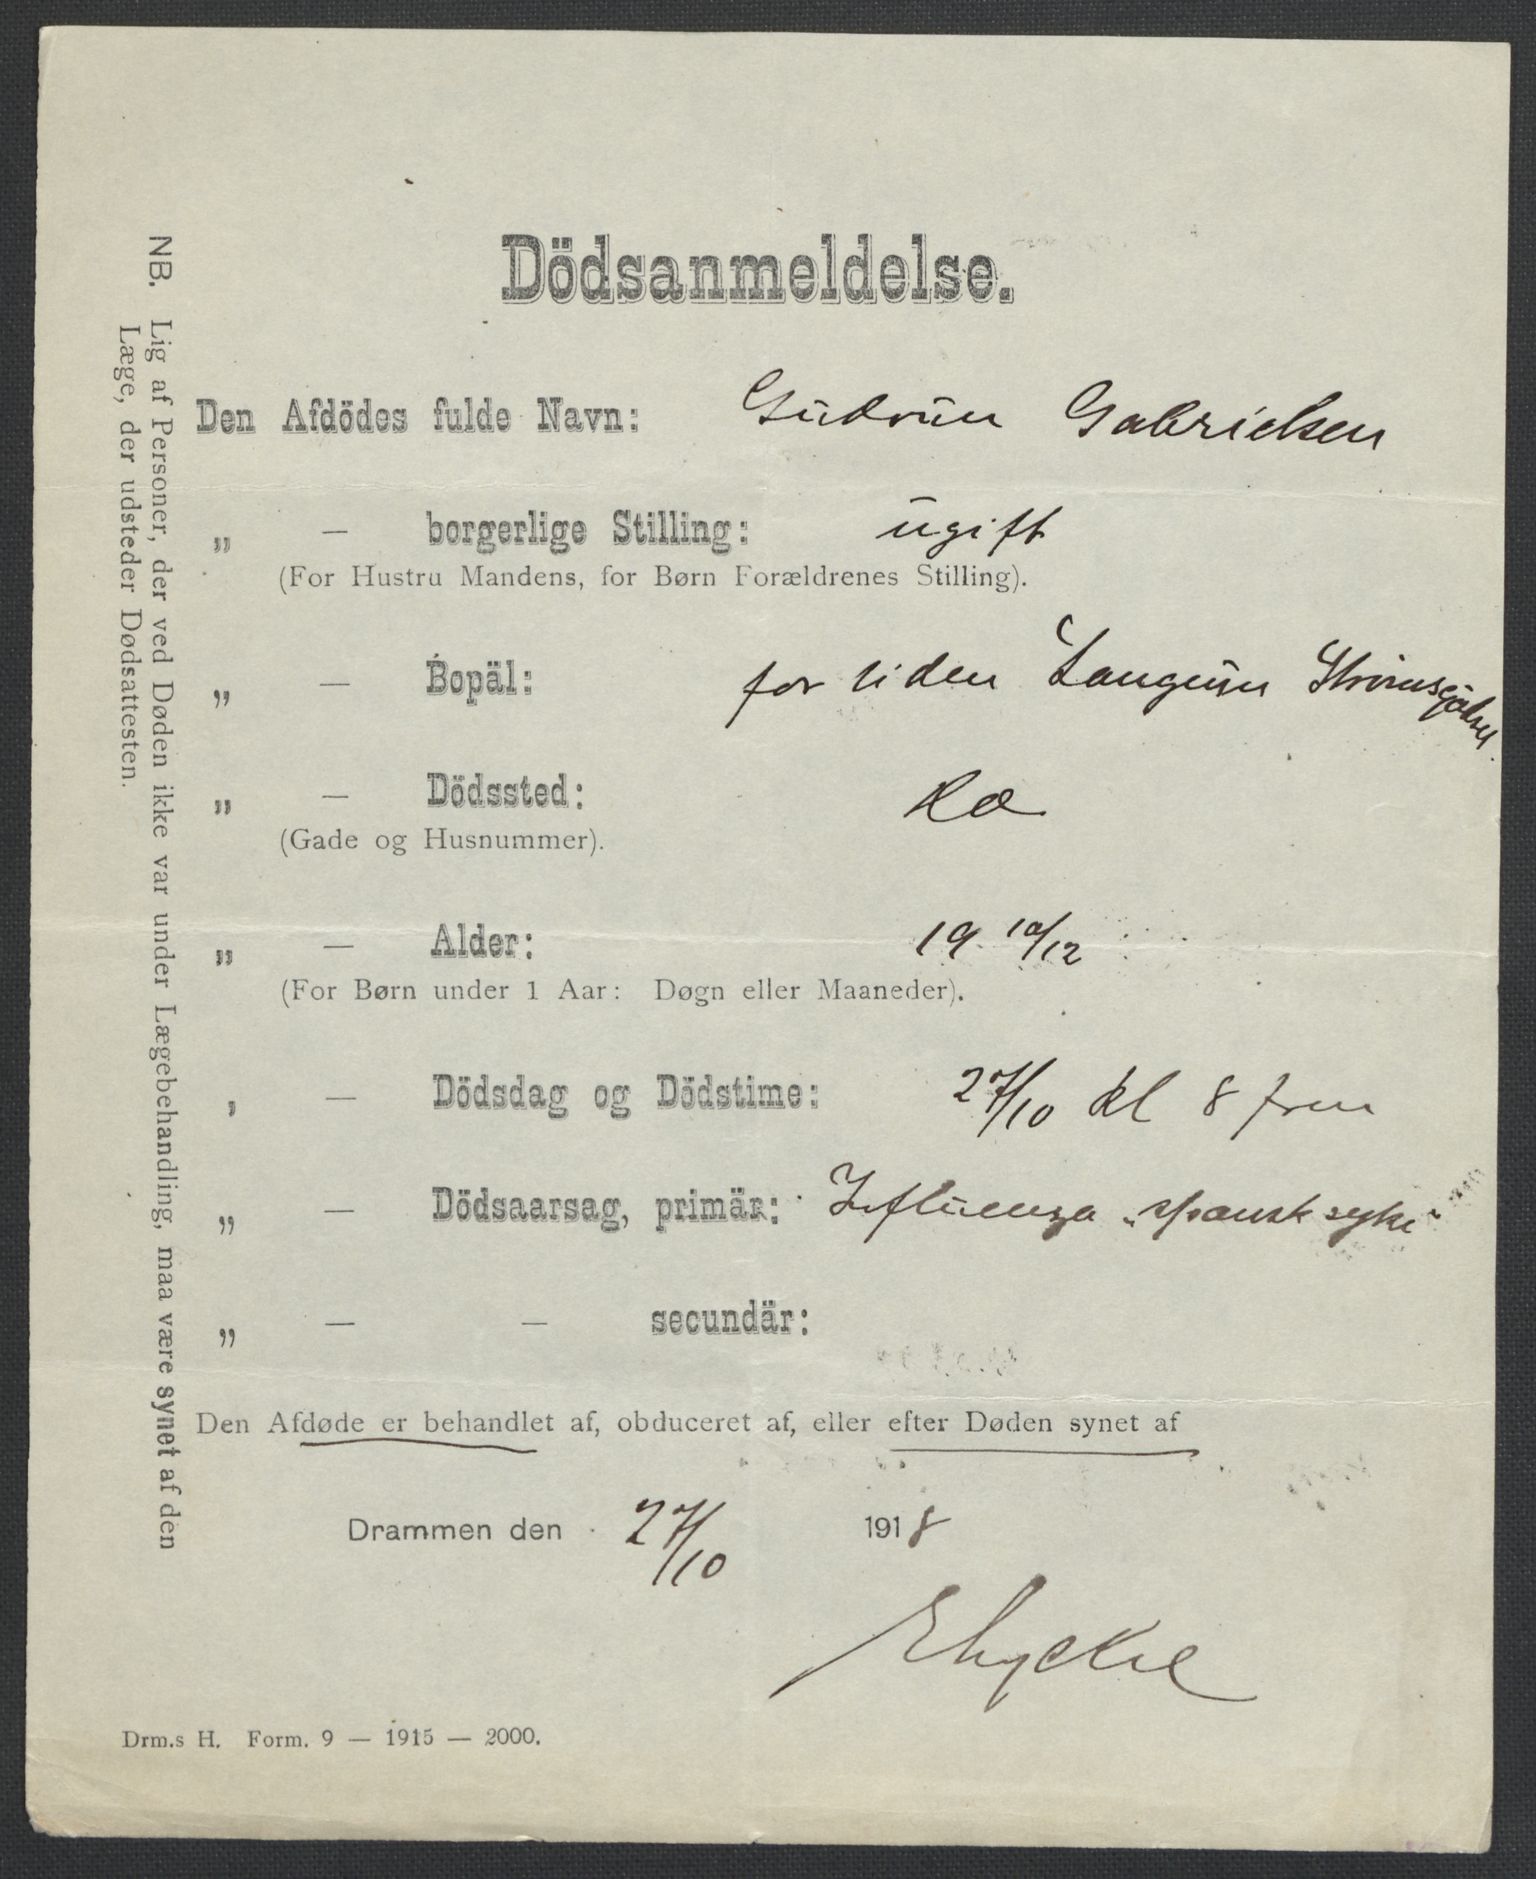 Dödsanmeldelse.
Den Afdödes fulde Navn: Gudrun Gabrielsen
„ — borgerlige Stilling: ugift
(For Hustru Mandens, for Børn Forældrenes Stilling).
„ — Bopäl: for tiden Langum
„ — Dödssted: do
(Gade og Husnummer).
„ — Alder: 19 10/12
(For Børn under 1 Aar: Døgn eller Maaneder).
, — Dödsdag og Dödstime: 27/10 kl 8 fm
„ — Dödsaarsag, primär: Influenza „spansk syke“
„ — — secundär:
Den Afdøde er behandlet af, obduceret af, eller efter Døden synet af
Drammen den 27/10 1918
Drm.s H. Form. 9 — 1915 — 2000.
NB. Lig af Personer, der ved Døden ikke var under Lægebehandling, maa være synet af den
Læge, der udsteder Dødsattesten.